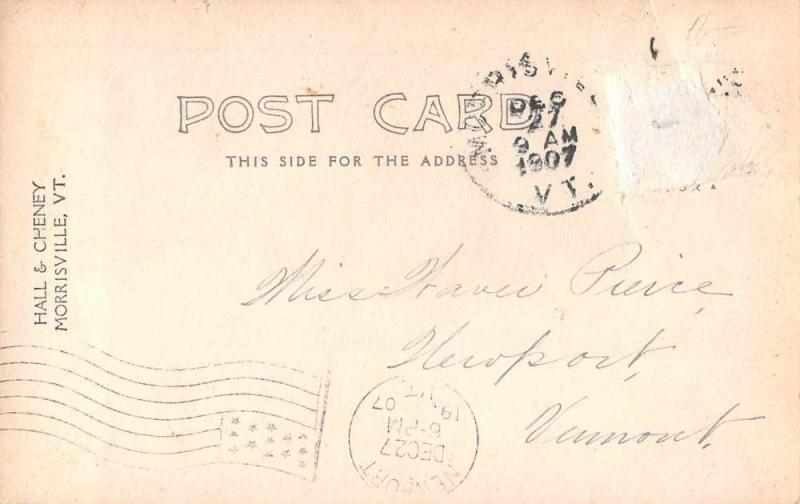 POST CARD
THIS SIDE FOR THE ADDRESS
MORRISVILLE
DEC
27
9 AM
1907
VT.
HALL & CHENEY
MORRISVILLE, VT.
Miss Pierce,
Newport,
Vermont.
NEWPORT
DEC 27
6-PM
19 07
VT.